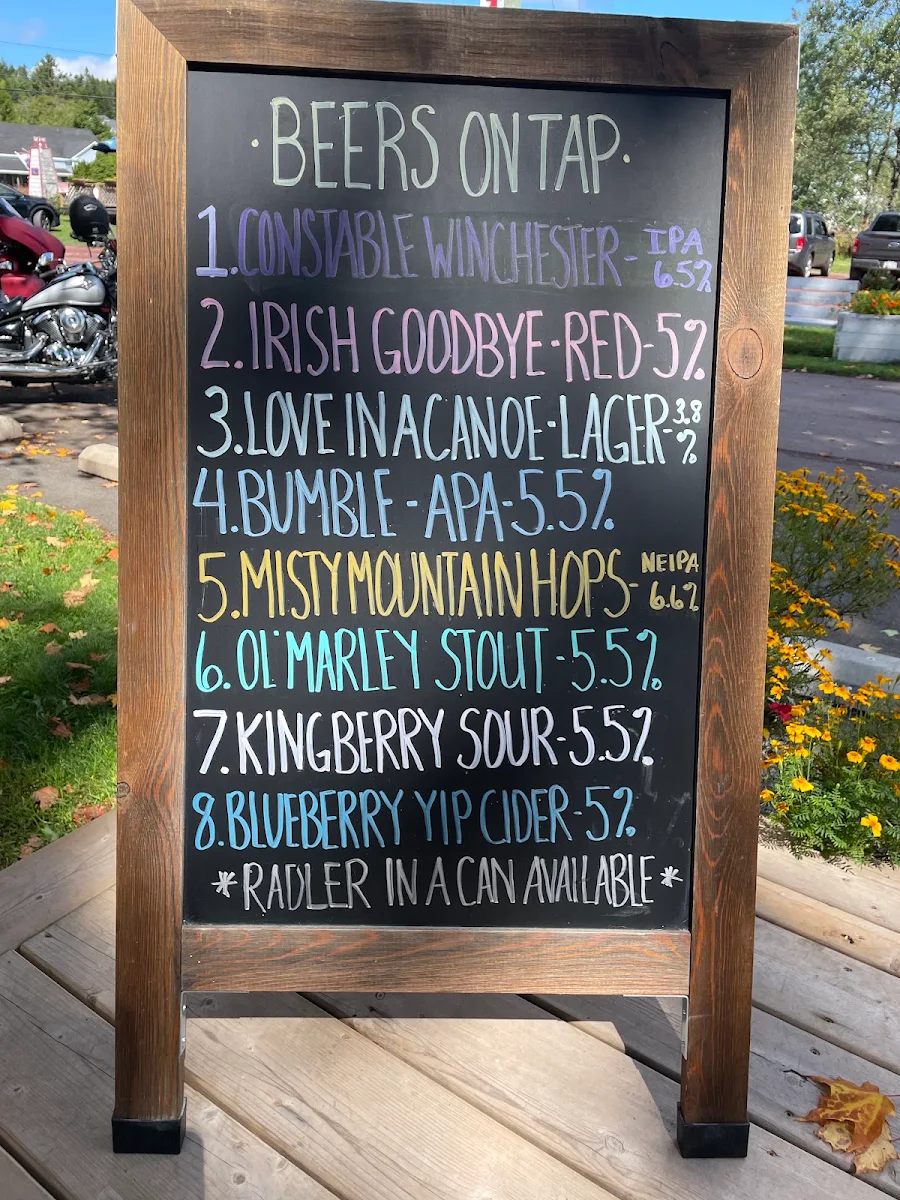 ·BEERS ON TAP·
1. CONSTABLE WINCHESTER - IPA 6.5%
2. IRISH GOODBYE · RED - 5%
3. LOVE IN A CANOE · LAGER - 3.8 %
4. BUMBLE - APA - 5.5%
5. MISTY MOUNTAIN HOPS - NEIPA 6.6%
6. OL' MARLEY STOUT - 5.5%
7. KINGBERRY SOUR - 5.5%
8. BLUEBERRY YIP CIDER - 5%
*RADLER IN A CAN AVAILABLE*